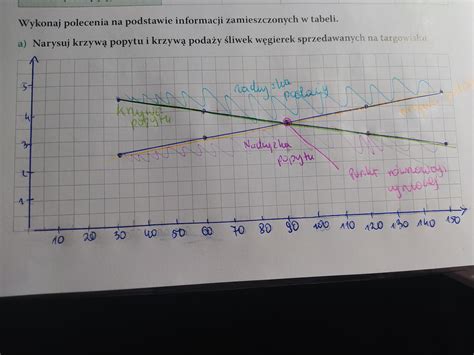 Wykonaj polecenia na podstawie informacji zamieszczonych w tabeli.
a) Narysuj krzywą popytu i krzywą podaży śliwek węgierek sprzedawanych na targowisku.
5
nadwyżka
podaży
Krzywa
popytu
4
3
Nadwyżka
popytu
Punkt równowagi
rynkowej
2
1
10 20 30 40 50 60 70 80 90 100 110 120 130 140 150